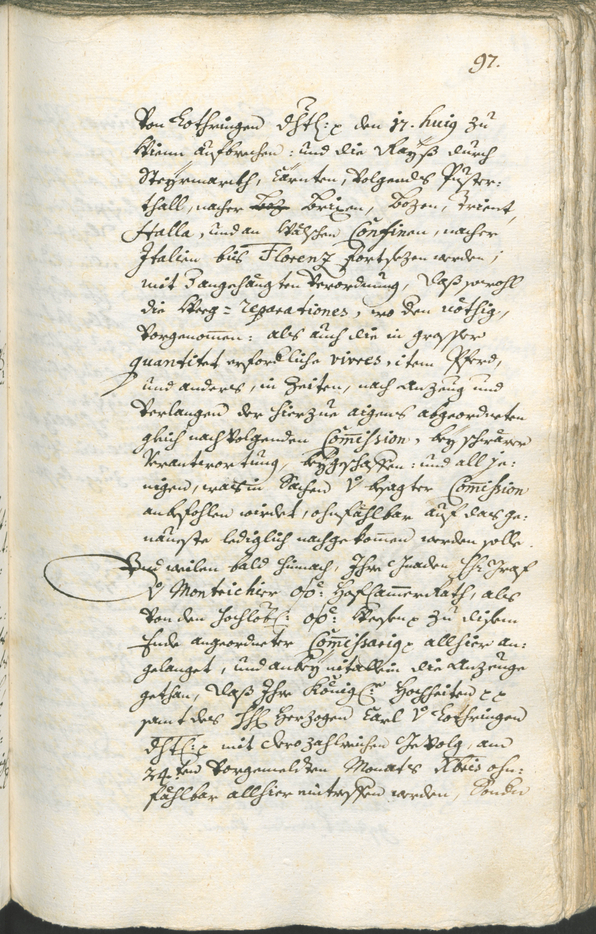 97.
Von Lothringen Dhtl: x den 17. huig zu
Wienn aufbrechen: und die Rayß durch
Steyrmarckh, Cärnten, volgends Puster:
thall, nacher Boz Brixen, Bozen, Trient,
Halla, und an Wälschen Confinen, nacher
Italien bis Florenz fortsezen werden;
mit dangehängten Verordnung, daß sowohl
die Weeg=reparationes, wo den nöthig,
vorgenommen: als auch die in grosser
quantitet erforderliche vivres, item Pferd,
und anders, in Zeiten, nach Anzeug und
Verlangen der hierzue aigens abgeordneten
gleich nachvolgenden Commission, bey schwärer
Verantworttung, beygeschaffen: und all je:
nigen, was in Sachen v. besagter Comission
anbefohlen wirdet, ohnfählbar auf das ge:
näueste lediglich nachgekommen werden solle.
Und weilen bald hinnach, Ihro Gnaden H: Graf
v. Monteichier OÖ: Hofcammerrath, als
von den hochlobl: OÖ: Weesen x zu disem
Ende angeordneter Commissarius x allhier an:
gelanget, und anbey mitallein die Anzeuge
gethan, daß Ihro Königl: Hochheiten xx
samt des H: Herzogen Carl v. Lothringen
Dhtl: x mit dero zahlreichen Gevolg, am
24ten vorgemeldten Monats Xbris ohn:
fählbar allhier eintreffen werden, Sonder